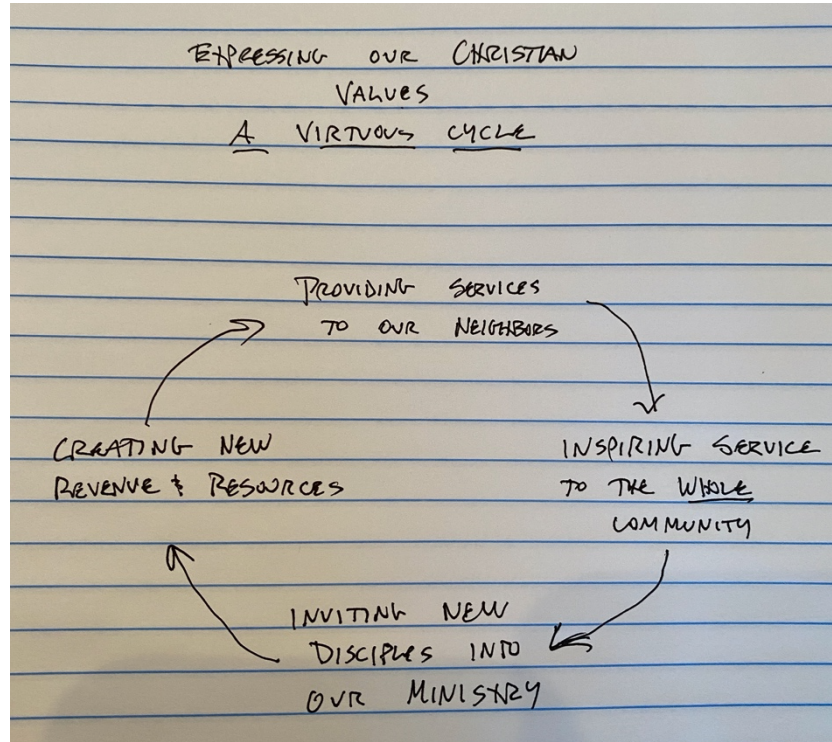 EXPRESSING OUR CHRISTIAN
VALUES
A VIRTUOUS CYCLE
PROVIDING SERVICES
TO OUR NEIGHBORS
INSPIRING SERVICE
TO THE WHOLE
COMMUNITY
INVITING NEW
DISCIPLES INTO
OUR MINISTRY
CREATING NEW
REVENUE & RESOURCES